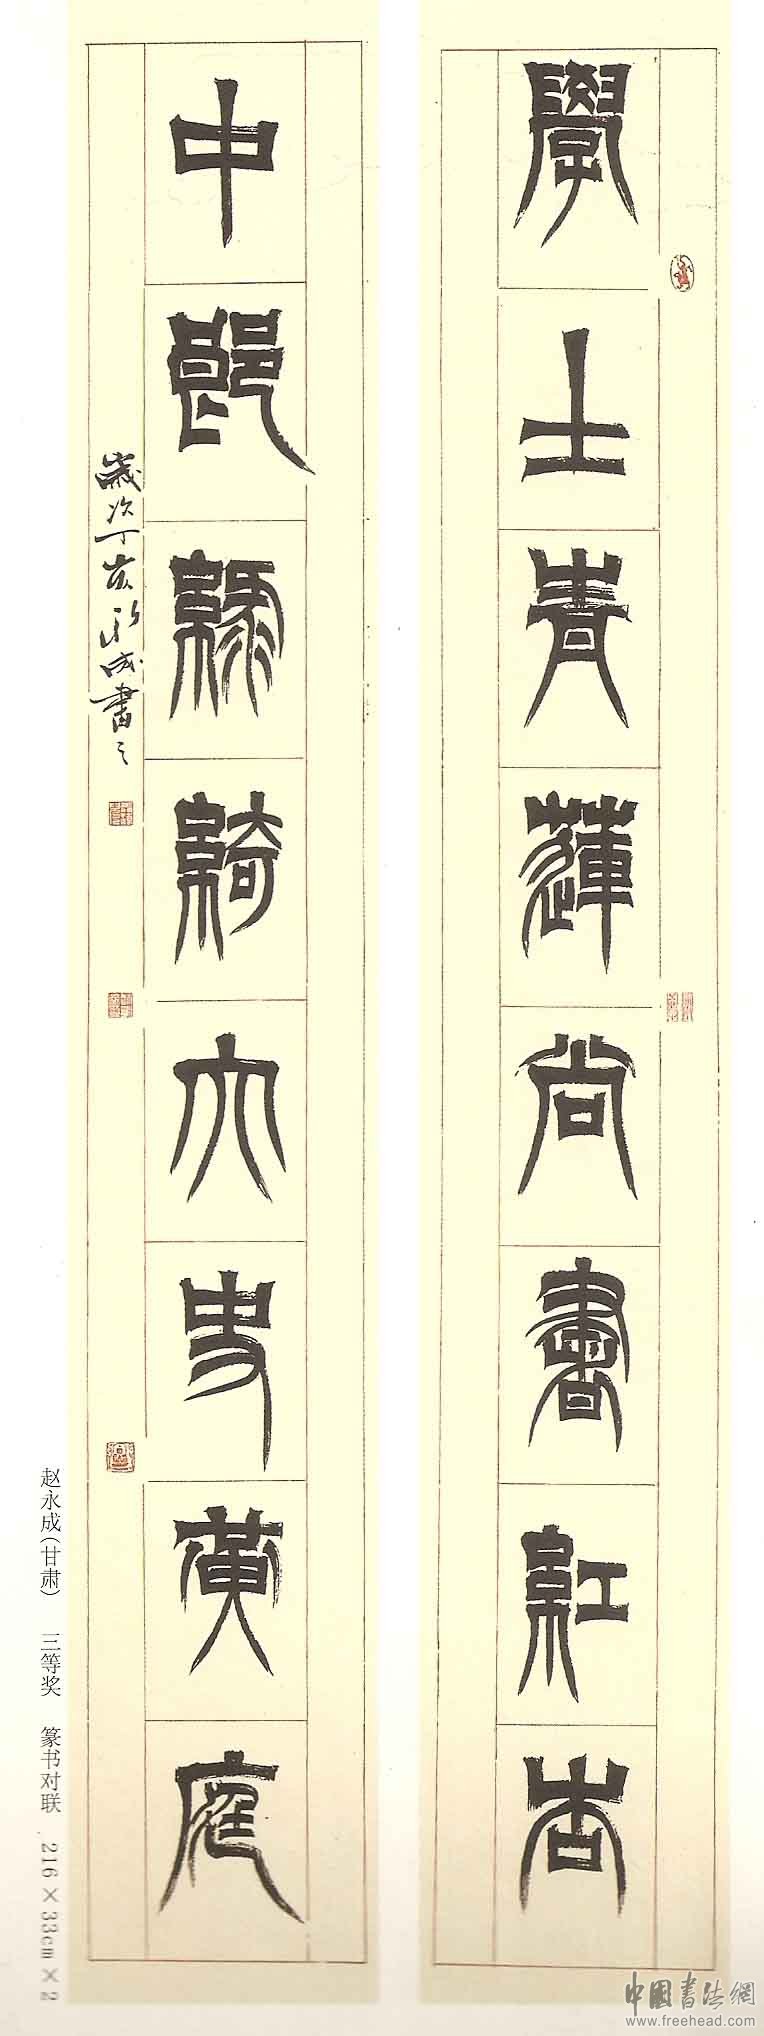 學士青蓮尚書紅杏
中郎綠綺太史黃庭
歲次丁亥永成書之
赵永成(甘肃) 三等奖 篆书对联 216×33cm×2
中國書法網
www.freehead.com